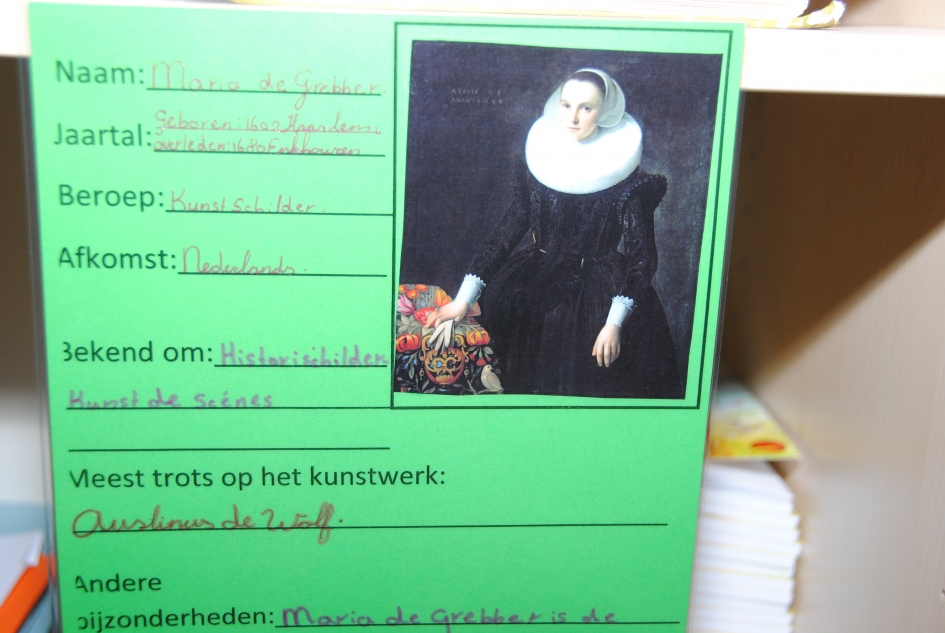 Naam: Maria de Grebber.
Jaartal: Geboren: 1602 Haarlem.
overleden: 1680 Enkhouzen
Beroep: Kunst Schilder.
Afkomst: Nederlands.
Bekend om: Historischilder
Kunst de scénes
Meest trots op het kunstwerk:
Auslinus de Wolf.
Andere
bijzonderheden: Maria de Grebber is de